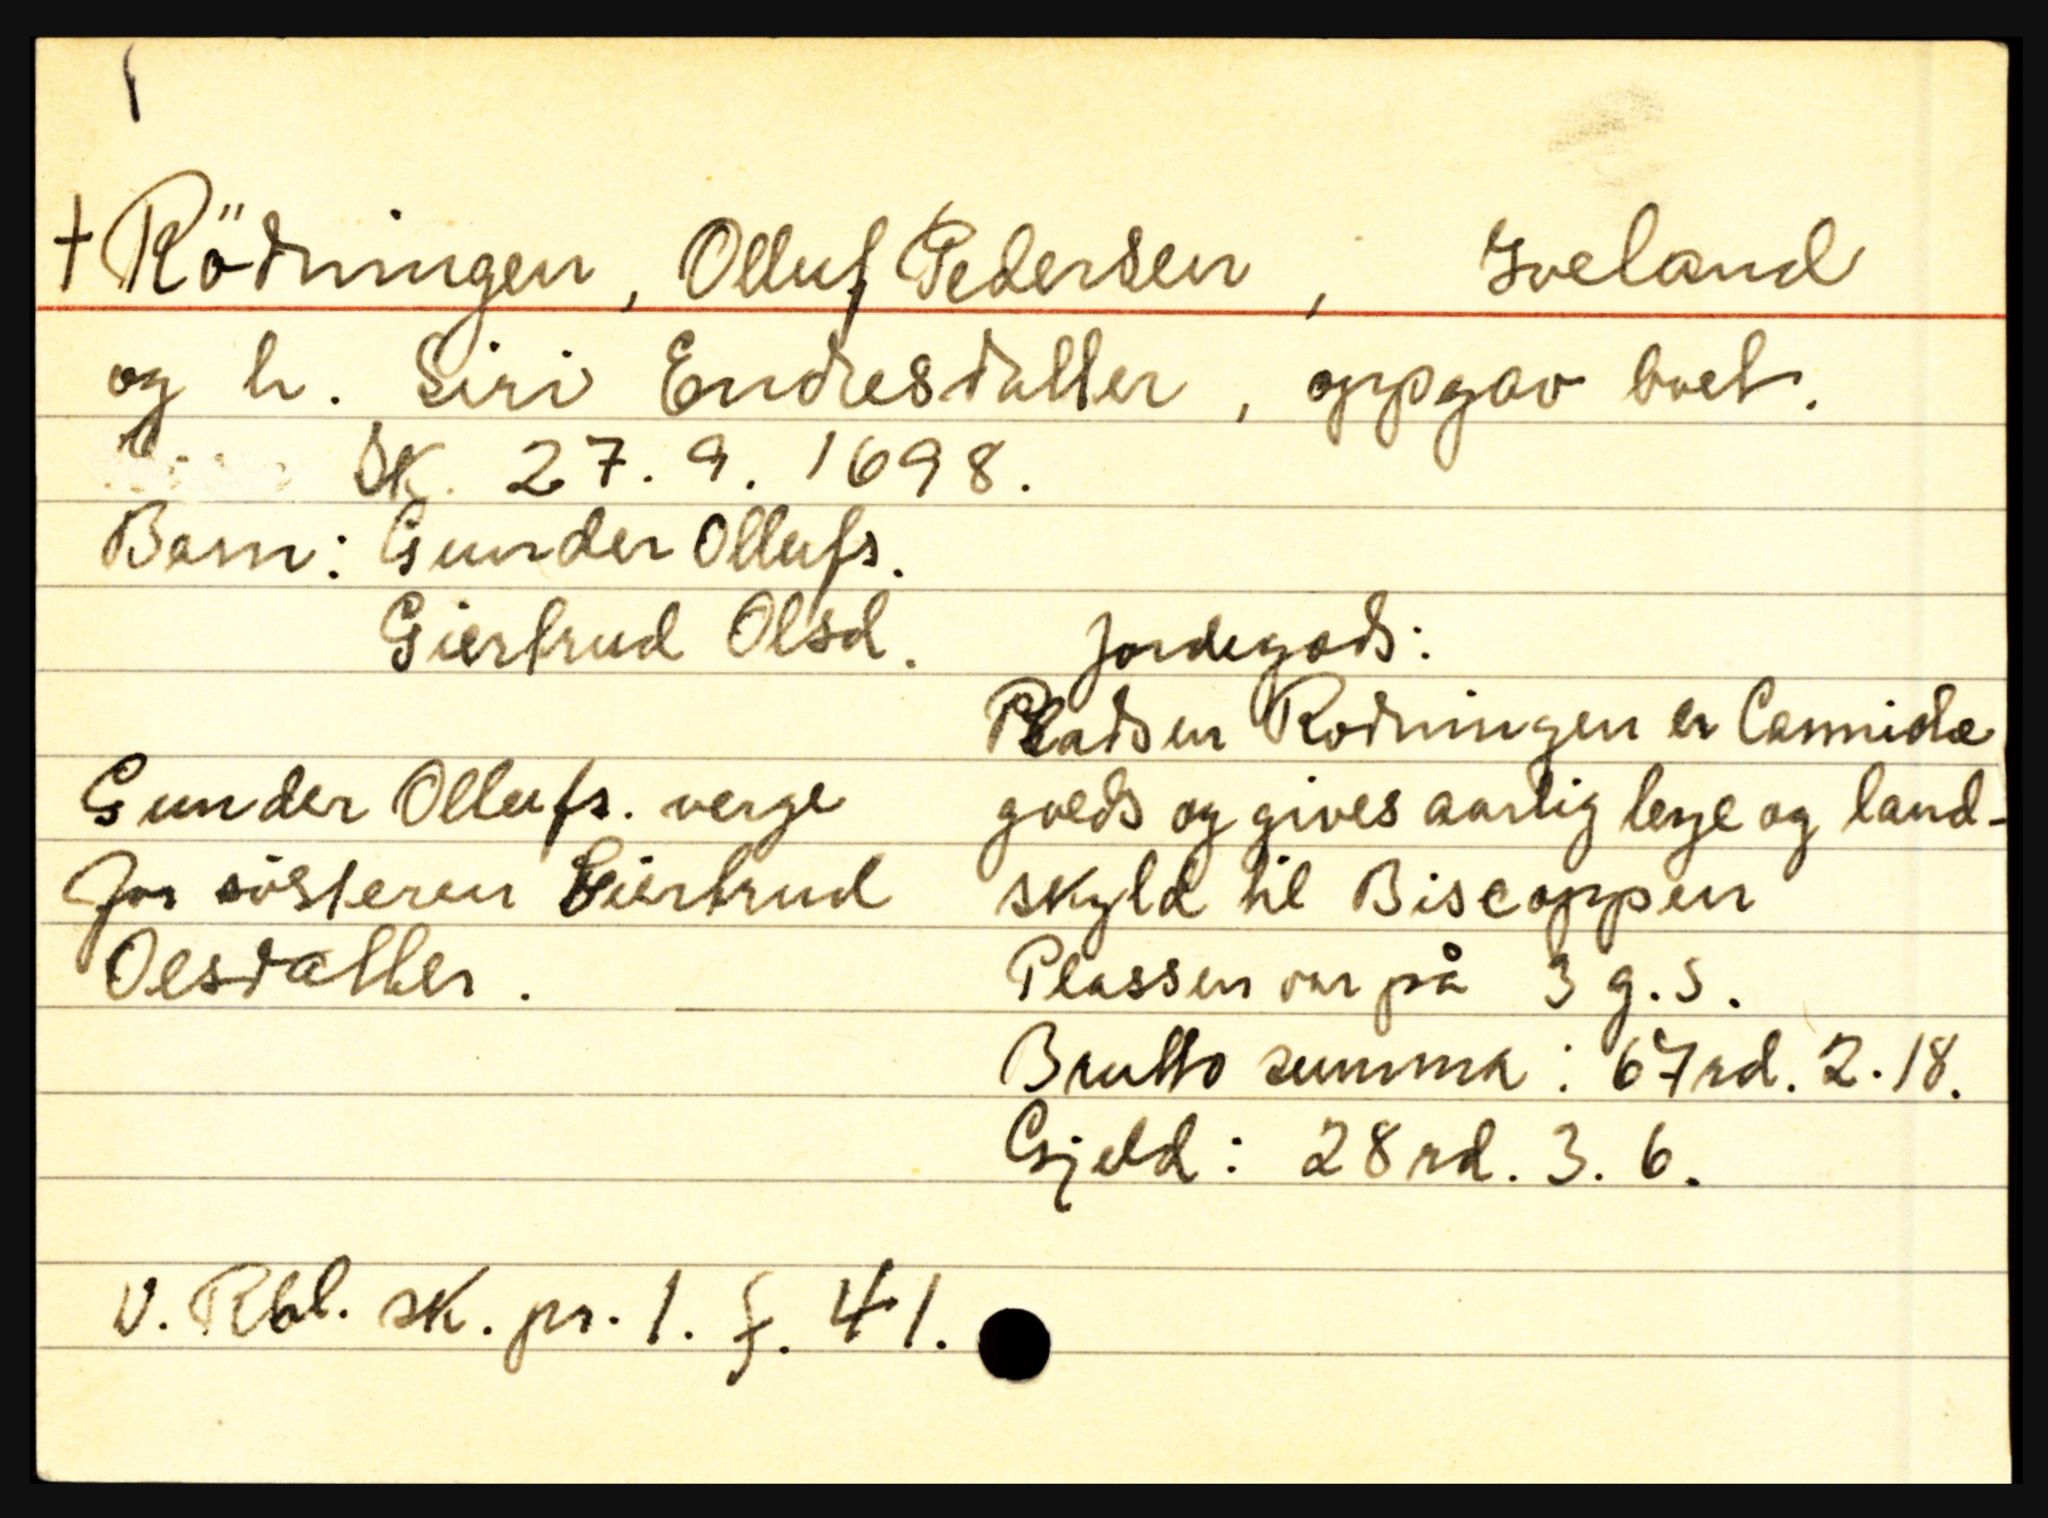 + Rödningen, Olluf Pedersen, Iveland
og h. Siri Endresdatter, oppgav boet.
Sk. 27. 9. 1698.
Barn: Gunder Ollufs.
Giertrud Olsd.
Gunder Ollufs. verge
for søsteren Giertrud
Olsdatter.
Jordegods:
Pladsen Rodningen er Cannicke
goeds og gives aarlig leye og land-
skyld til Biscoppen
Plassen var på 3 g. s.
Brutto summa: 67 rd. 2. 18.
Gjeld: 28 rd. 3. 6.
V. Rbl. sk. pr. 1. f. 41.